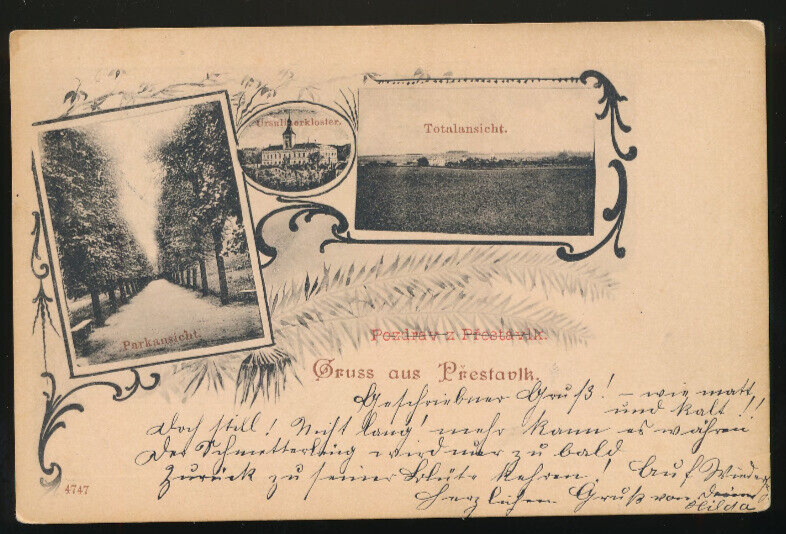 Ursulinerkloster.
Totalansicht.
Parkansicht.
Pozdrav z Přestavlk.
Gruss aus Přestavlk.
Geschriebner Gruß! – wie matt
und kalt!!
Doch still! Nicht lang' mehr kann es währen
Der Schmetterling wird nur zu bald
Zurück zu seiner Blüte kehren! Auf Wieder
Herzlichen Gruß von Deiner
Hilda
4747